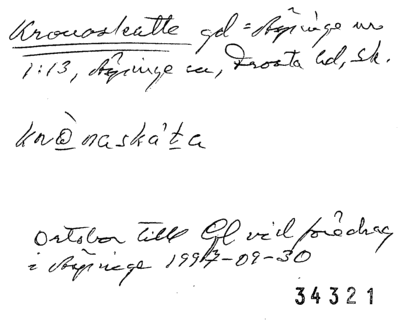 Kronoskatte gd = Äspinge nr
1:13, Äspinge sn, Frosta hd, Sk.
krò̲naská't̲a
Ortsbor till Gl vid föredrag
i Äspinge 1997-09-30
34321